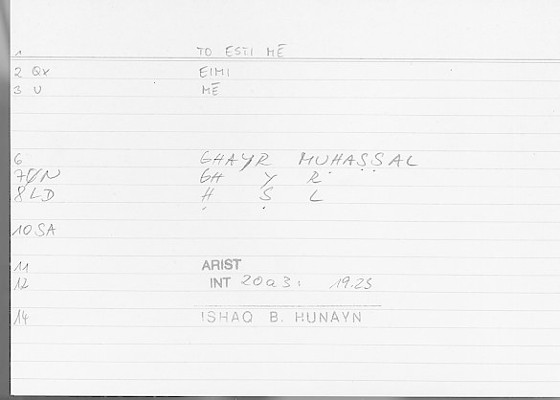 1 TO ESTI MĒ
2 Qx EIMI
3 U MĒ
6 GHAYR MUḤAṢṢAL
7 V/N GH Y R
8 LD Ḥ Ṣ L
10 SA
11 ARIST
12 INT 20a3: 19.25
14 ISHAQ B. HUNAYN